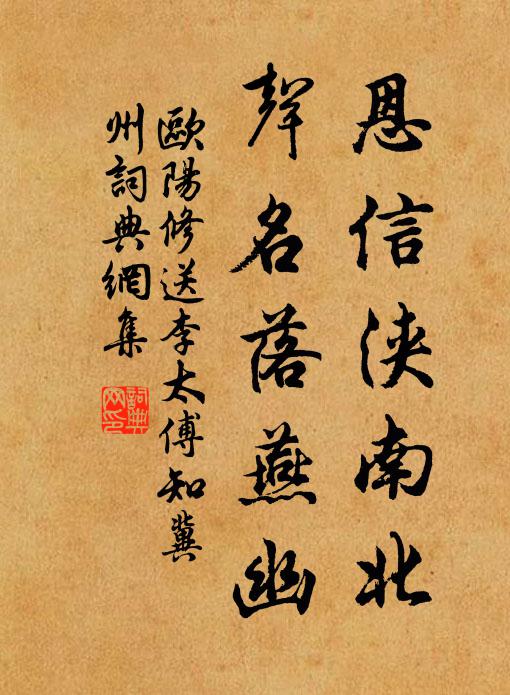 恩信浹南北
聲名落燕幽
歐陽修送李太傅知冀
州詞典網集
詞典
网印